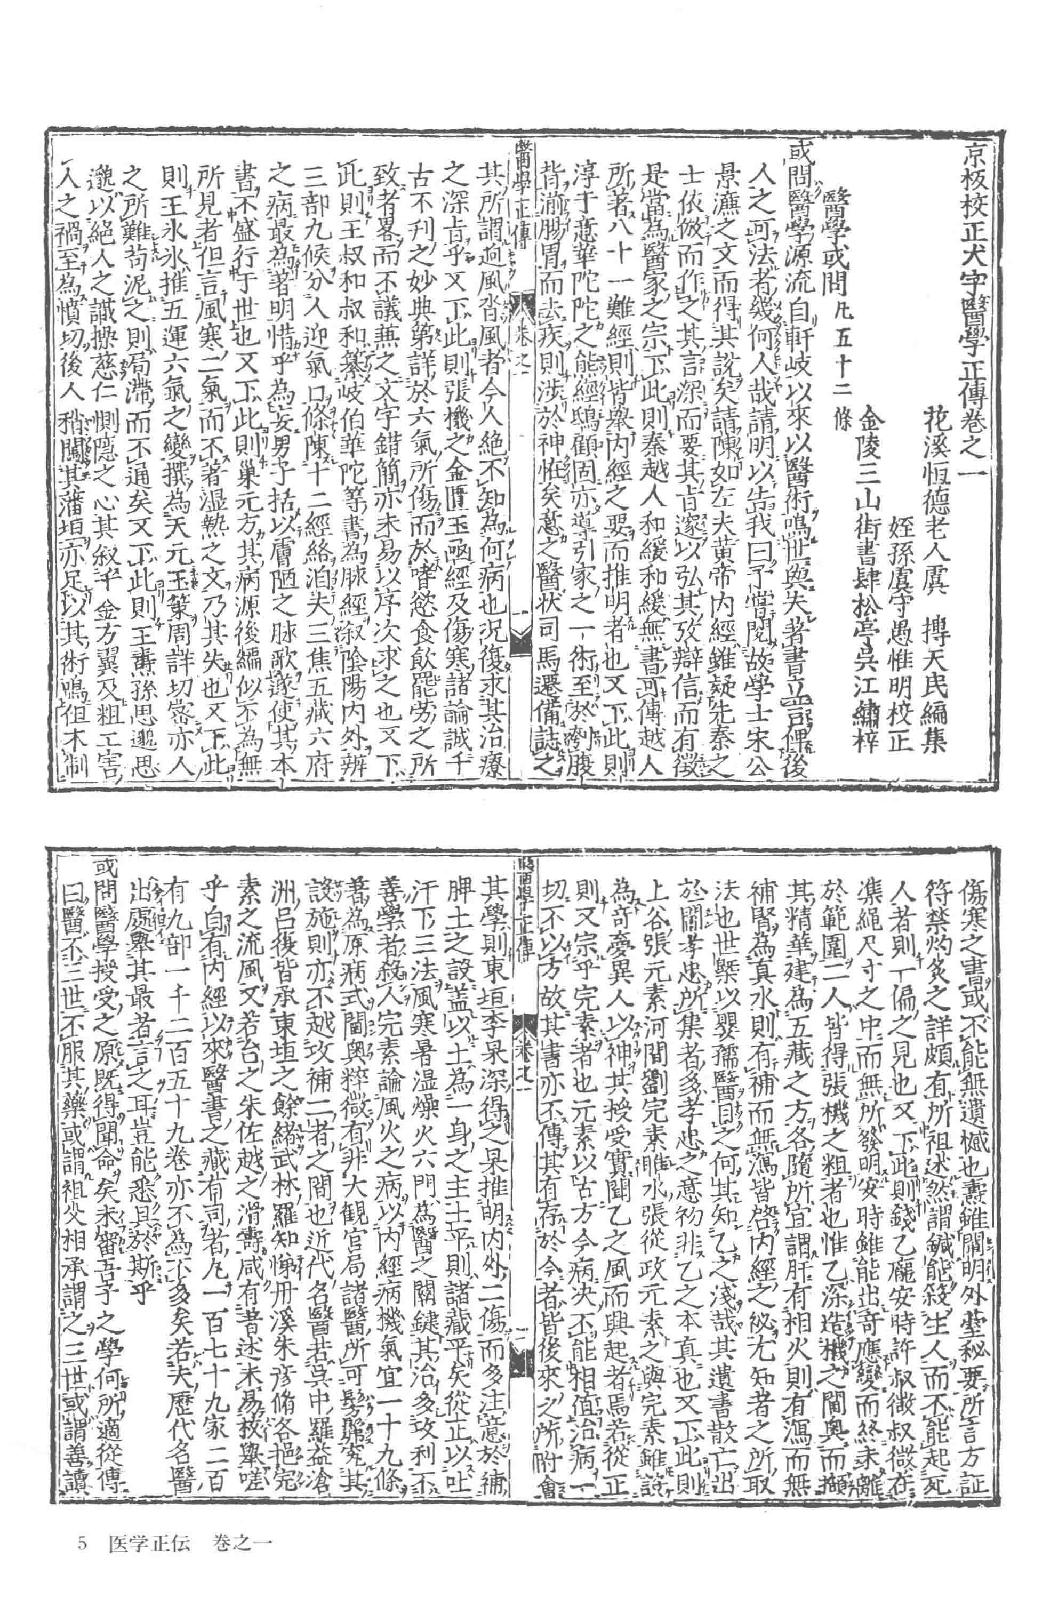 京板校正大字醫學正傳卷之一
花溪恆德老人虞　摶天民編集
姪孫虞守愚惟明校正
金陵三山街書肆松亭吳江繡梓
醫學或問凡五十二條
或問醫學源流自軒岐以來以醫術鳴世與夫著書立言俾後
人之可法者幾何人哉請明以告我曰予嘗閱故學士宋公
景濂之文而得其說矣請陳如左夫黃帝內經雖疑先秦之
士依倣而作之其言深而要其旨邃以弘其攷辯信而有徵
是當為醫家之宗下此則秦越人和緩和緩無書可傳越人
所著八十一難經則皆舉內經之要而推明者也又下此則
淳于意華陀陀之能經鴟顧固亦導引家之一術至於刳腹
背湔腸胃而去疾則涉於神恠矣意之醫状司馬遷備誌之
醫學正傳
卷之一
一
其所謂逈風沓風者今人絕不知為何病也況復求其治療
之深旨乎又下此則張機之金匱玉函經及傷寒諸論誠千
古不刊之妙典第詳於六氣所傷而於嗜慾食飲罷劳之所
致者畧而不議兼之文字錯簡亦未易以序次求之也又下
此則王叔和叔和纂岐伯華陀等書為脉經叙陰陽內外辨
三部九候分人迎氣口條陳十二經絡洎夫三焦五藏六府
之病最為著明惜乎為妄男子括以膚陋之脉歌遂使其本
書不盛行于世也又下此則巢元方其病源後編似不為無
所見者但言風寒二氣而不著湿熱之文乃其失也又下此
則王氷氷推五運六氣之變撰為天元玉策周詳切密亦人
之所難苟泥之則局滯而不通矣又下此則王燾孫思邈思
邈以絕人之識操慈仁惻隱之心其叙千金方翼及粗工害
人之禍至為憤切後人稍闖其藩垣亦足以其術鳴但不制
傷寒之書或不能無遺憾也燾雖闡明外臺秘要所言方証
符禁灼灸之詳頗有所祖述然謂鍼能殺生人而不能起死
人者則一偏之見也又下此則錢乙龐安時許叔微叔微在
準繩尺寸之中而無所發明安時雖能出奇應變而終未離
於範圍二人皆得張機之粗者也惟乙深造機之閫奧而擷
其精華建為五藏之方各隨所宜謂肝有相火則有瀉而無
補腎為真水則有補而無瀉皆啓內經之祕尤知者之所取
法也世槩以嬰孺醫目之何其知乙之淺哉其遺書散亡出
於閻孝忠所集者多孝忠之意初非乙之本真也又下此則
上谷張元素河間劉完素睢水張從政元素之與完素雖設
為奇夢異人以神其授受實聞乙之風而興起者焉若從正
則又宗乎完素者也元素以古方今病决不能相值治病一
切不以方故其書亦不傳其有存於今者皆後來之所附會
醫學正傳
卷之一
二
其學則東垣李杲深得之杲推明內外二傷而多注意於補
脾土之設盖以土為一身之主土平則諸藏平矣從正以吐
汗下三法風寒暑湿燥火六門為醫之關鍵其治多攻利不
善學者殺人完素論風火之病以內經病機氣宜一十九條
著為原病式閫奧粹微有非大觀官局諸醫所可髣髴究其
設施則亦不越攻補二者之間也近代名醫若吳中羅益滄
洲呂復皆承東垣之餘緒武林羅知悌丹溪朱彥脩各挹完
素之流風又若台之朱佐越之滑壽咸有書述未易枚舉嗟
乎自有內經以來醫書之藏有司者凡一百七十九家二百
有九部一千二百五十九卷亦不為不多矣若夫歷代名醫
出處槩其最者言之耳豈能悉具於斯乎
或問醫學授受之原既得聞命矣未審吾子之學何所適從傳
曰醫不三世不服其藥或謂祖父相承謂之三世或謂善讀
5　医学正伝　巻之一